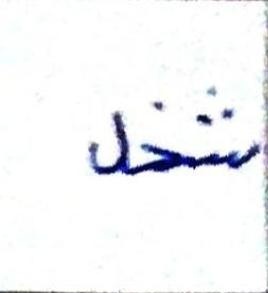 شخل